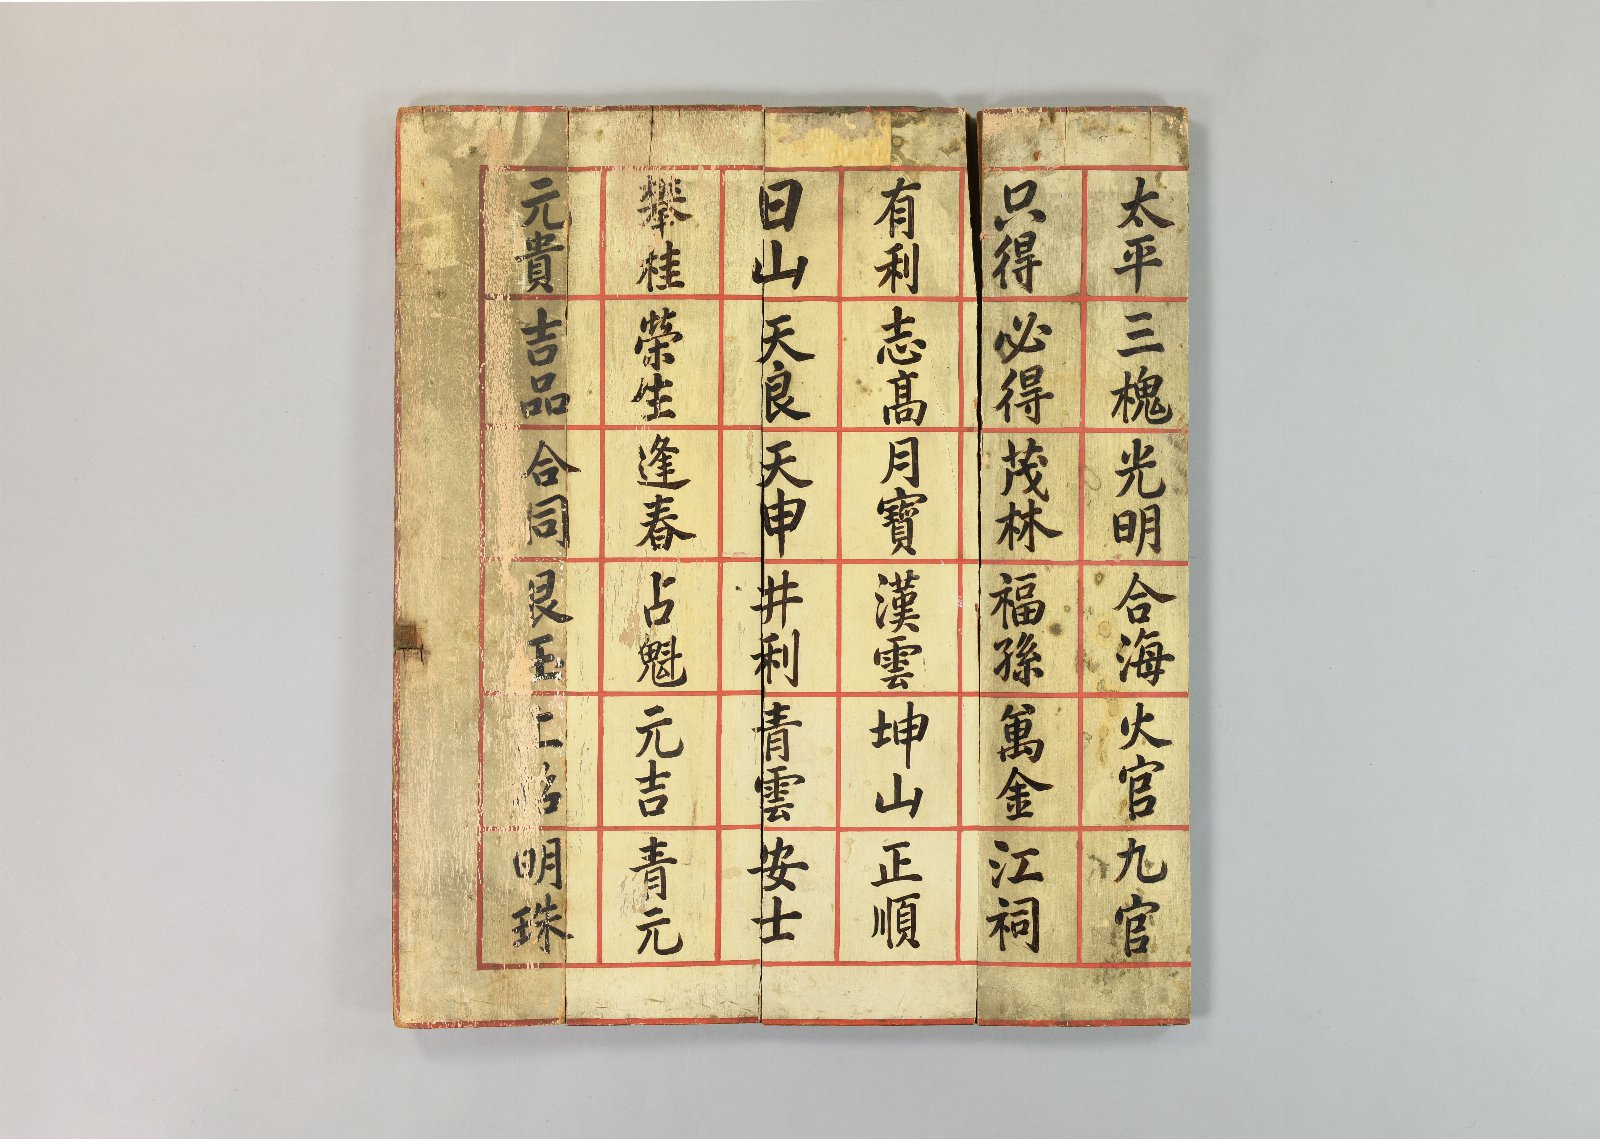 太平 三槐 光明 合海 火官 九官
只得 必得 茂林 福孫 萬金 江祠
有利 志高 月寶 漢雲 坤山 正順
日山 天良 天申 井利 青雲 安士
攀桂 榮生 逢春 占魁 元吉 青元
元貴 吉品 合同 艮玉 明珠